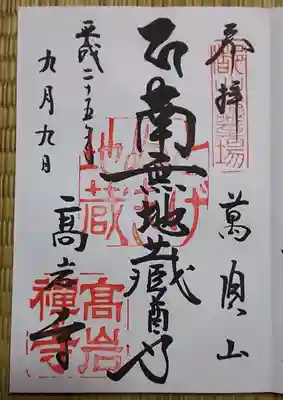 奉拝
萬頂山
南無地蔵尊
高岩寺
平成二十五年
九月九日
地蔵
高岩
禅寺